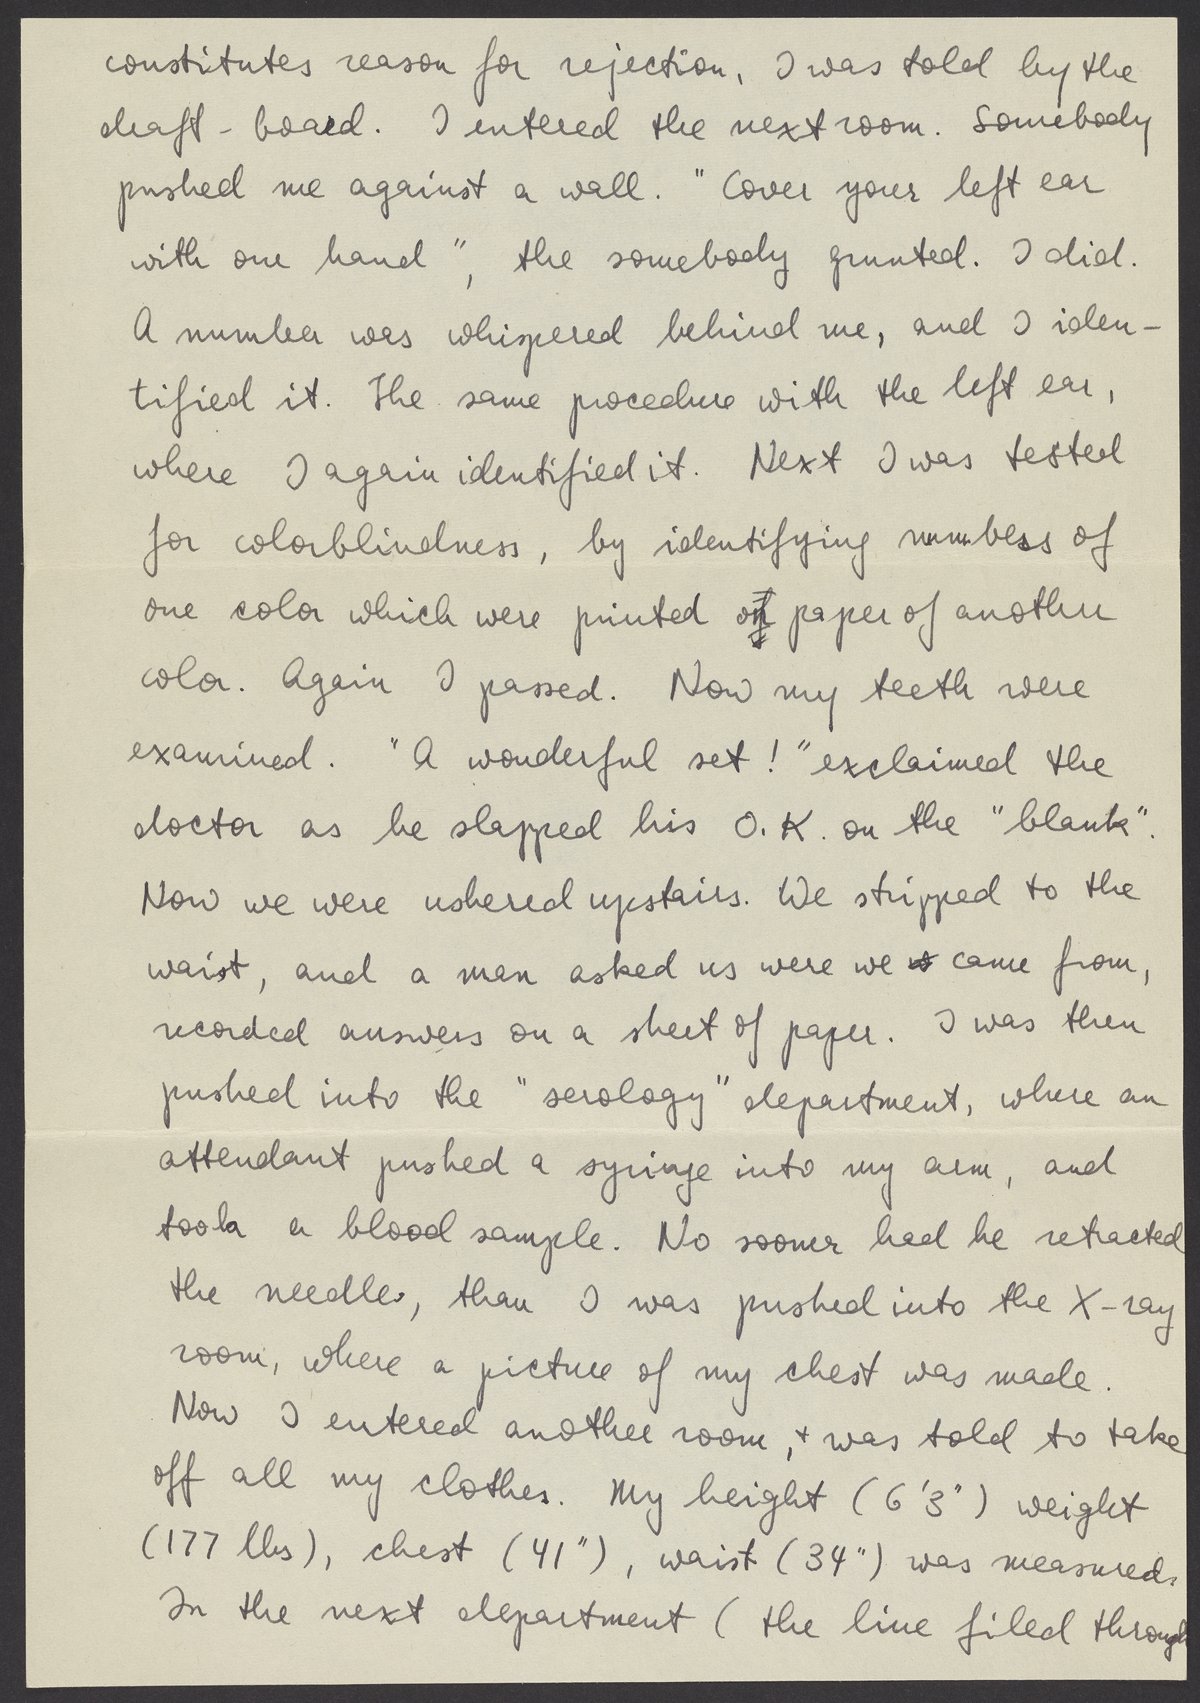 constitutes reason for rejection, I was told by the
draft - board. I entered the next room. Somebody
pushed me against a wall. "Cover your left ear
with one hand", the somebody grunted. I did.
A number was whispered behind me, and I iden-
tified it. The same procedure with the left ear,
where I again identified it. Next I was tested
for colorblindness, by identifying numbers of
one color which were printed on paper of another
color. Again I passed. Now my teeth were
examined. "A wonderful set!" exclaimed the
doctor as he slapped his O.K. on the "blank".
Now we were ushered upstairs. We stripped to the
waist, and a man asked us were we came from,
recorded answers on a sheet of paper. I was then
pushed into the "serology" department, where an
attendant pushed a syringe into my arm, and
took a blood sample. No sooner had he retracted
the needle, than I was pushed into the X-ray
room, where a picture of my chest was made.
Now I entered another room, + was told to take
off all my clothes. My height (6'3") weight
(177 lbs), chest (41"), waist (34") was measured.
In the next department (the line filed through